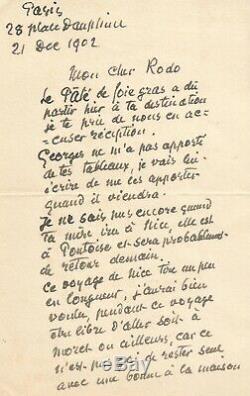 Paris
28 place Dauphine
21 Dec 1902
Mon cher Rodo
Le Pâté de foie gras a dû
partir hier à ta destination
je te prie de nous en ac-
cuser réception.
Georges ne m'a pas apporté
de tes tableaux, je vais lui
écrire de me les apporter
quand il viendra.
Je ne sais pas encore quand
ta mère ira à Nice, elle est
à Pontoise et sera probablemt
de retour demain.
ce voyage de Nice tire un peu
en longueur, j'aurai bien
voulu, pendant ce voyage
être libre d'aller soit à
Moret ou ailleurs, car ce
n'est pas gai de rester seul
avec une bonne à la maison